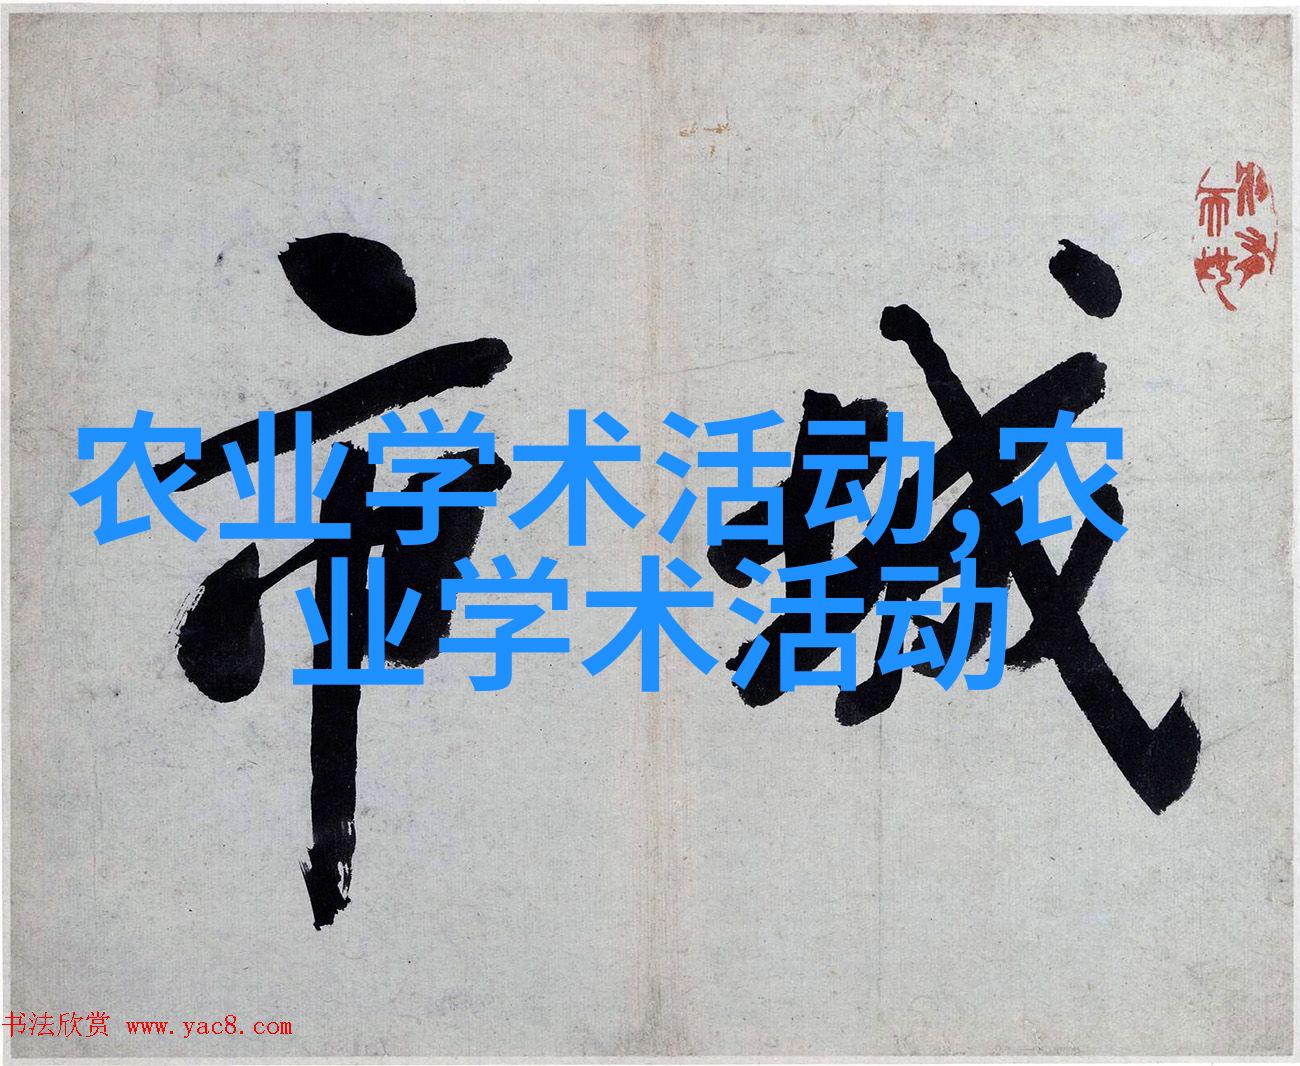 城市
农业学术活动,农
业学术活动
书法欣赏 www.yac8.com